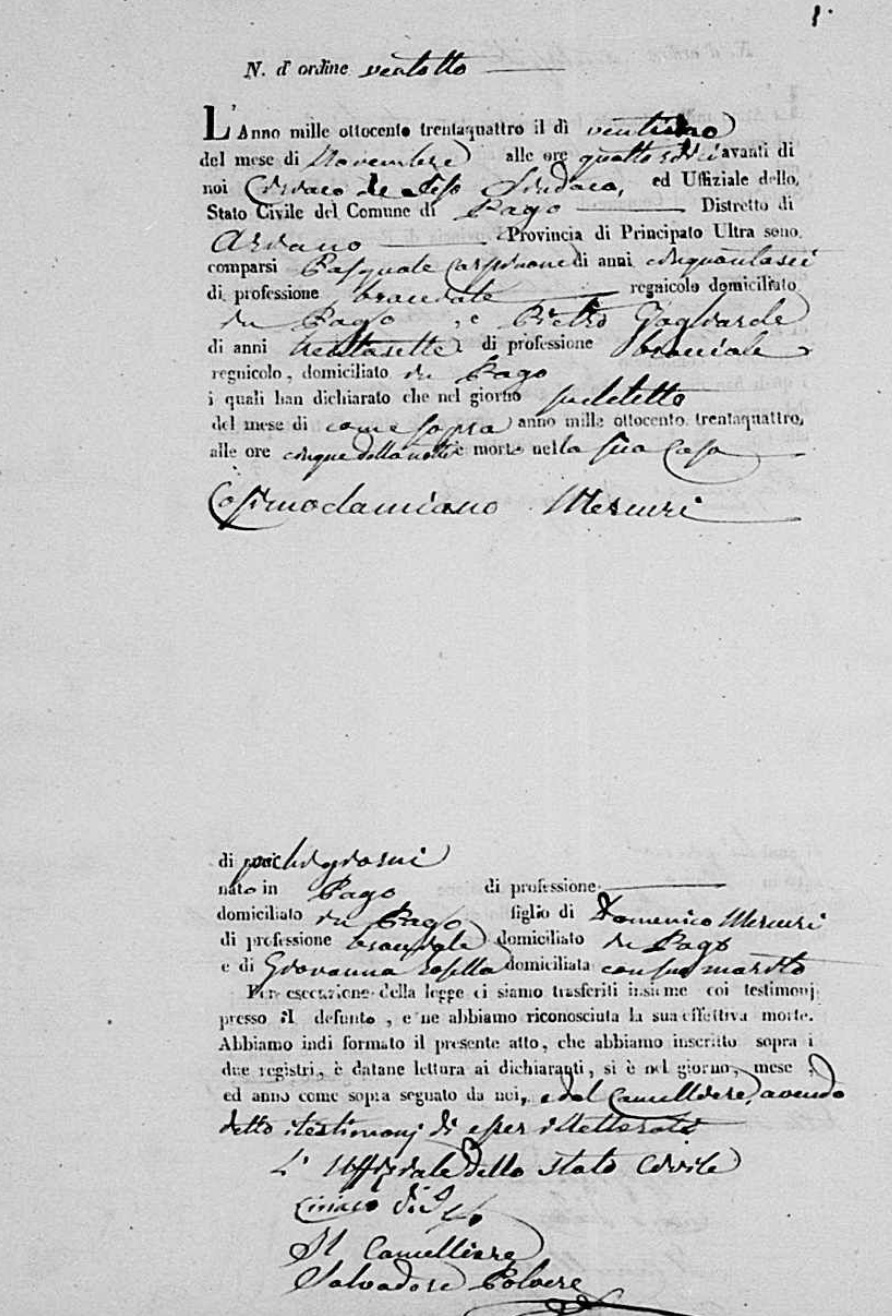 1.
N. d' ordine ventotto
L'Anno mille ottocento trentaquattro il dì
del mese di Novembre alle ore quattordici avanti di
noi Ciriaco de Sindaco, ed Uffiziale dello
Stato Civile del Comune di Pago Distretto di
Ariano Provincia di Principato Ultra sono
comparsi Pasquale Carpinone di anni cinquantasei
di professione bracciale regnicolo domiciliato
in Pago, e Pietro Gagliarde
di anni trentasette di professione bracciale
regnicolo, domiciliato in Pago
i quali han dichiarato che nel giorno sudetetto
del mese di come sopra anno mille ottocento trentaquattro,
alle ore cinque della notte è morto nella sua Casa
Cosimodamiano Mercuri
di pochi giorni
nato in Pago di professione
domiciliato in Pago figlio di Domenico Mercuri
di professione bracciale domiciliato in Pago
e di Giovanna domiciliata con suo marito
Per esecuzione della legge ci siamo trasferiti insieme coi testimonj
presso il defunto, e ne abbiamo riconosciuta la sua effettiva morte.
Abbiamo indi formato il presente atto, che abbiamo inscritto sopra i
due registri, è datane lettura ai dichiaranti, si è nel giorno, mese,
ed anno come sopra segnato da noi, e dal Cancelliere, avendo
detto i testimonj di esser illetterati
L' Uffiziale dello Stato Civile
Ciriaco di
Il Cancelliere
Salvadore Polvere